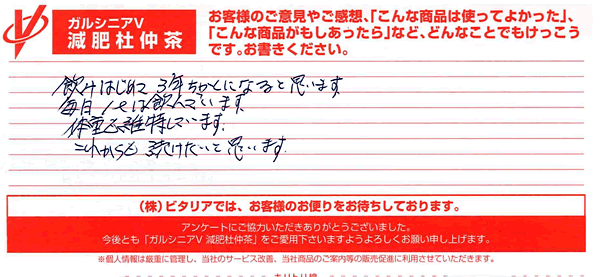 ガルシニアV
減肥杜仲茶
お客様のご意見やご感想、「こんな商品は使ってよかった」、
「こんな商品がもしあったら」など、どんなことでもけっこう
です。お書きください。
飲みはじめて3年ちかくになると思います
毎日1ℓは飲んでいます。
体重も維持しています。
これからも続けたいと思います。
(株)ビタリアでは、お客様のお便りをお待ちしております。
アンケートにご協力いただきありがとうございました。
今後とも「ガルシニアV 減肥杜仲茶」をご愛用下さいますようよろしくお願い申し上げます。
※個人情報は厳重に管理し、当社のサービス改善、当社商品のご案内等の販売促進に利用させていただきます。